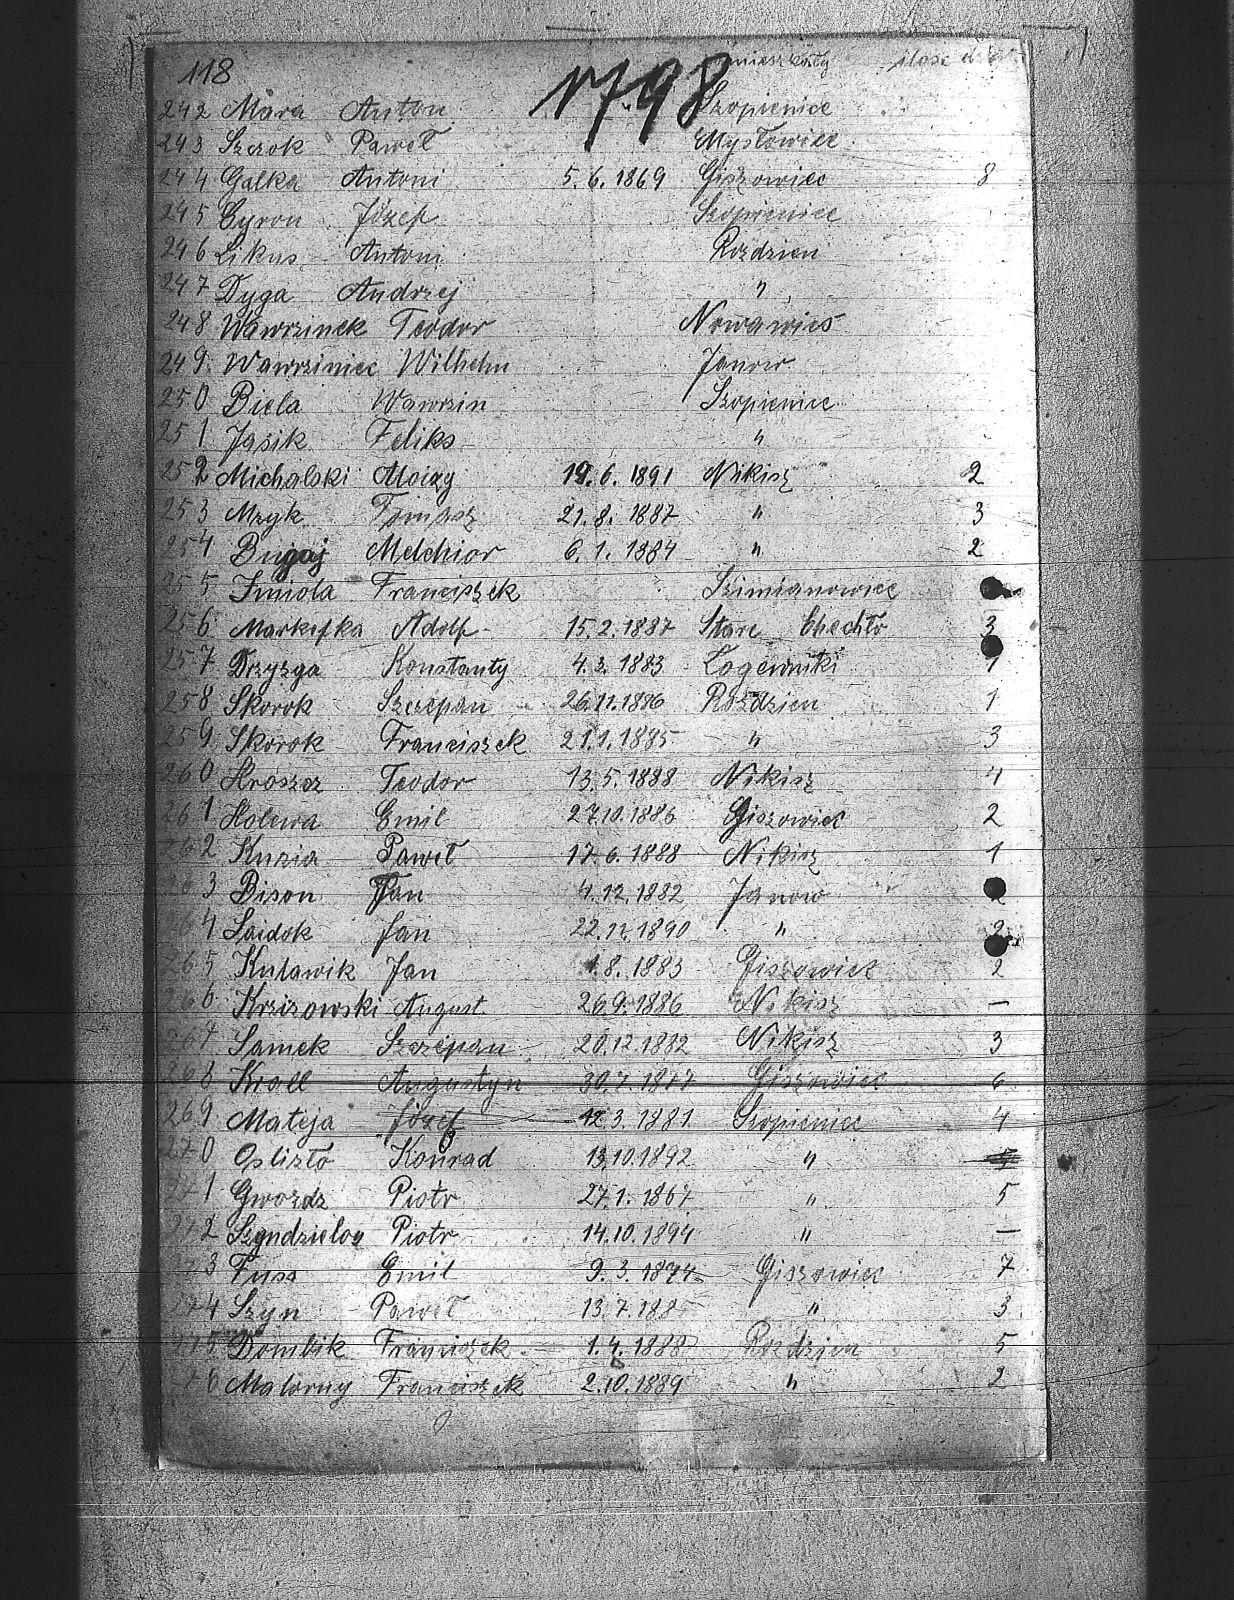 118 1798 zamieszkały ilość
242 Mara Anton Szopienice
243 Szczok Paweł Mysłowice
244 Galka Antoni 5.6.1869 Giszowiec 8
245 Cyron Józef Szopienice
246 Likus Antoni Rozdzien
247 Dyga Andrzej "
248 Wawrzinek Teodor Nowawies
249. Wawrziniec Wilhelm Janow
250 Biela Wawrzin Szopienice
251 Jasik Feliks "
252 Michalski Aloizy 19.6.1891 Nikisz 2
253 Mzyk Tomasz 21.8.1887 " 3
254 Bugaj Melchior 6.1.1884 " 2
255 Imiola Franciszek Szimianowice
256 Markefka Adolf 15.2.1887 Stare Chechło 3
257 Drzyzga Konstanty 4.2.1883 Zagerniki 1
258 Skorok Szczepan 26.11.1886 Rozdzien 1
259 Skorok Franciszek 21.1.1885 " 3
260 Hroszcz Teodor 13.5.1888 Nikisz 4
261 Holewa Emil 27.10.1886 Giszowiec 2
262 Kuzia Paweł 17.6.1888 Nikisz 1
263 Bison Jan 4.12.1882 Janow 2
264 Saidok Jan 22.11.1890 " 2
265 Kulawik Jan 1.8.1883 Giszowiec 2
266 Krzizowski August 26.9.1886 Nikisz —
267 Samek Szczepan 20.12.1882 Nikisz 3
268 Kroll Augustyn 30.7.1877 Giszowiec 6
269 Mateja Józef 12.3.1881 Szopieniec 4
270 Oslizło Konrad 13.10.1892 "
271 Gwozdz Piotr 27.1.1867 " 5
272 Szyndzielorz Piotr 14.10.1894 " —
273 Fuss Emil 9.3.1874 Giszowiec 7
274 Szyn Paweł 13.7.1885 " 3
275 Dombik Franciszek 1.4.1888 Rozdzien 5
276 Malorny Franciszek 2.10.1889 " 2